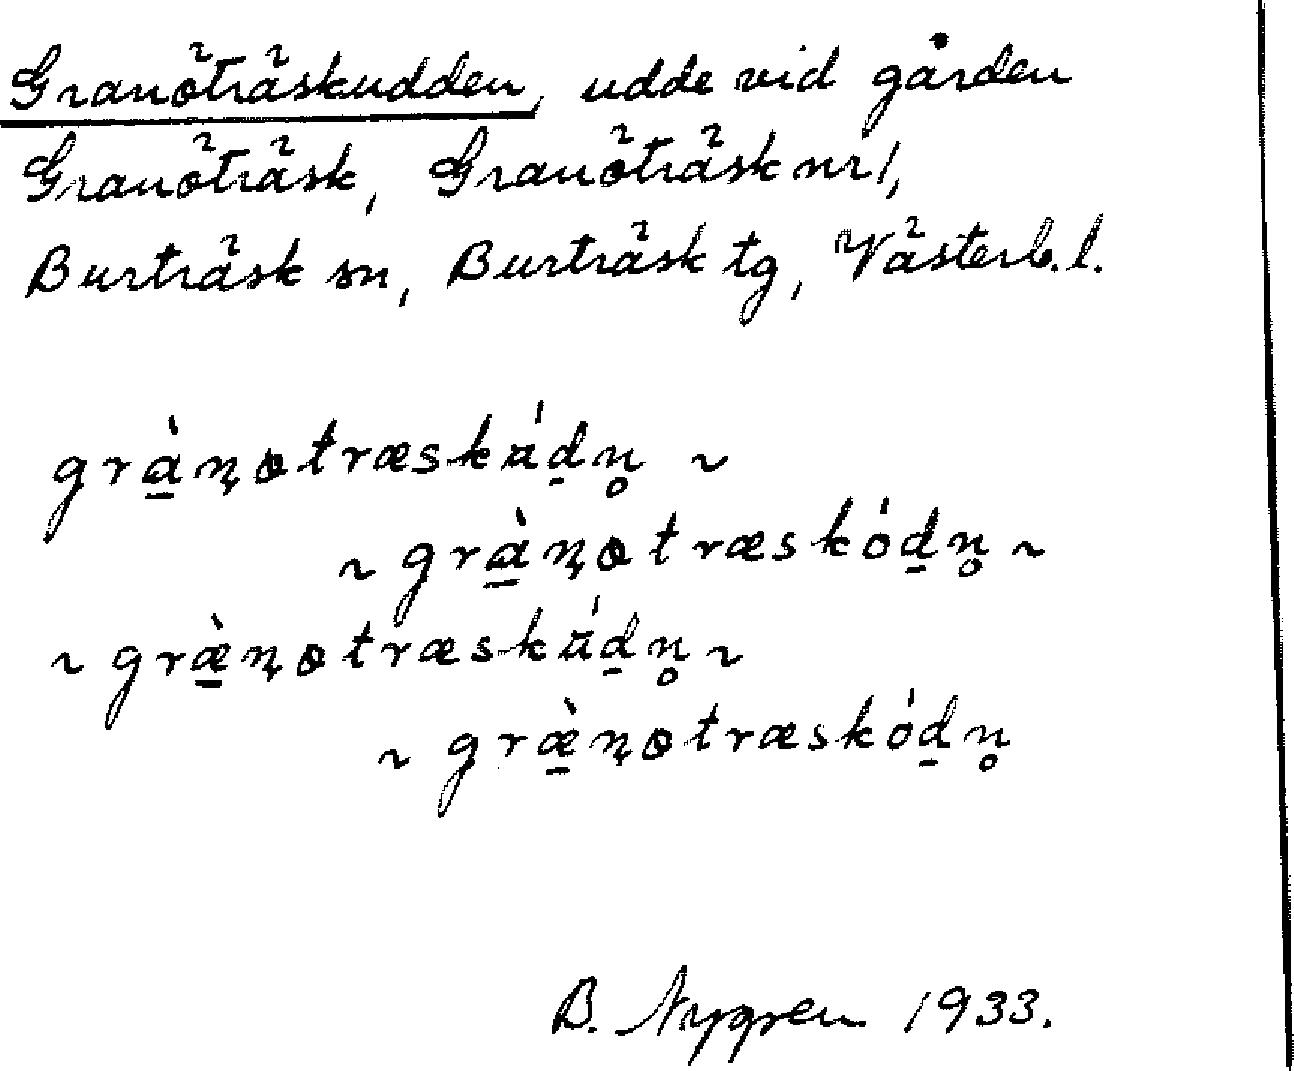 Granöträskudden, udde vid gården
Granöträsk, Granöträsk nr 1,
Burträsk sn, Burträsk tg, Västerb. l.
grὰ̱n̨ɵtræskʉ́d̠n̥ ~
~ grὰ̱n̨ɵtræskód̠n̥ ~
~ græ̱̀n̨ɵtræskʉ́d̠n̥ ~
~ græ̱̀n̨ɵtræskód̠n̥
B. Nygren 1933.